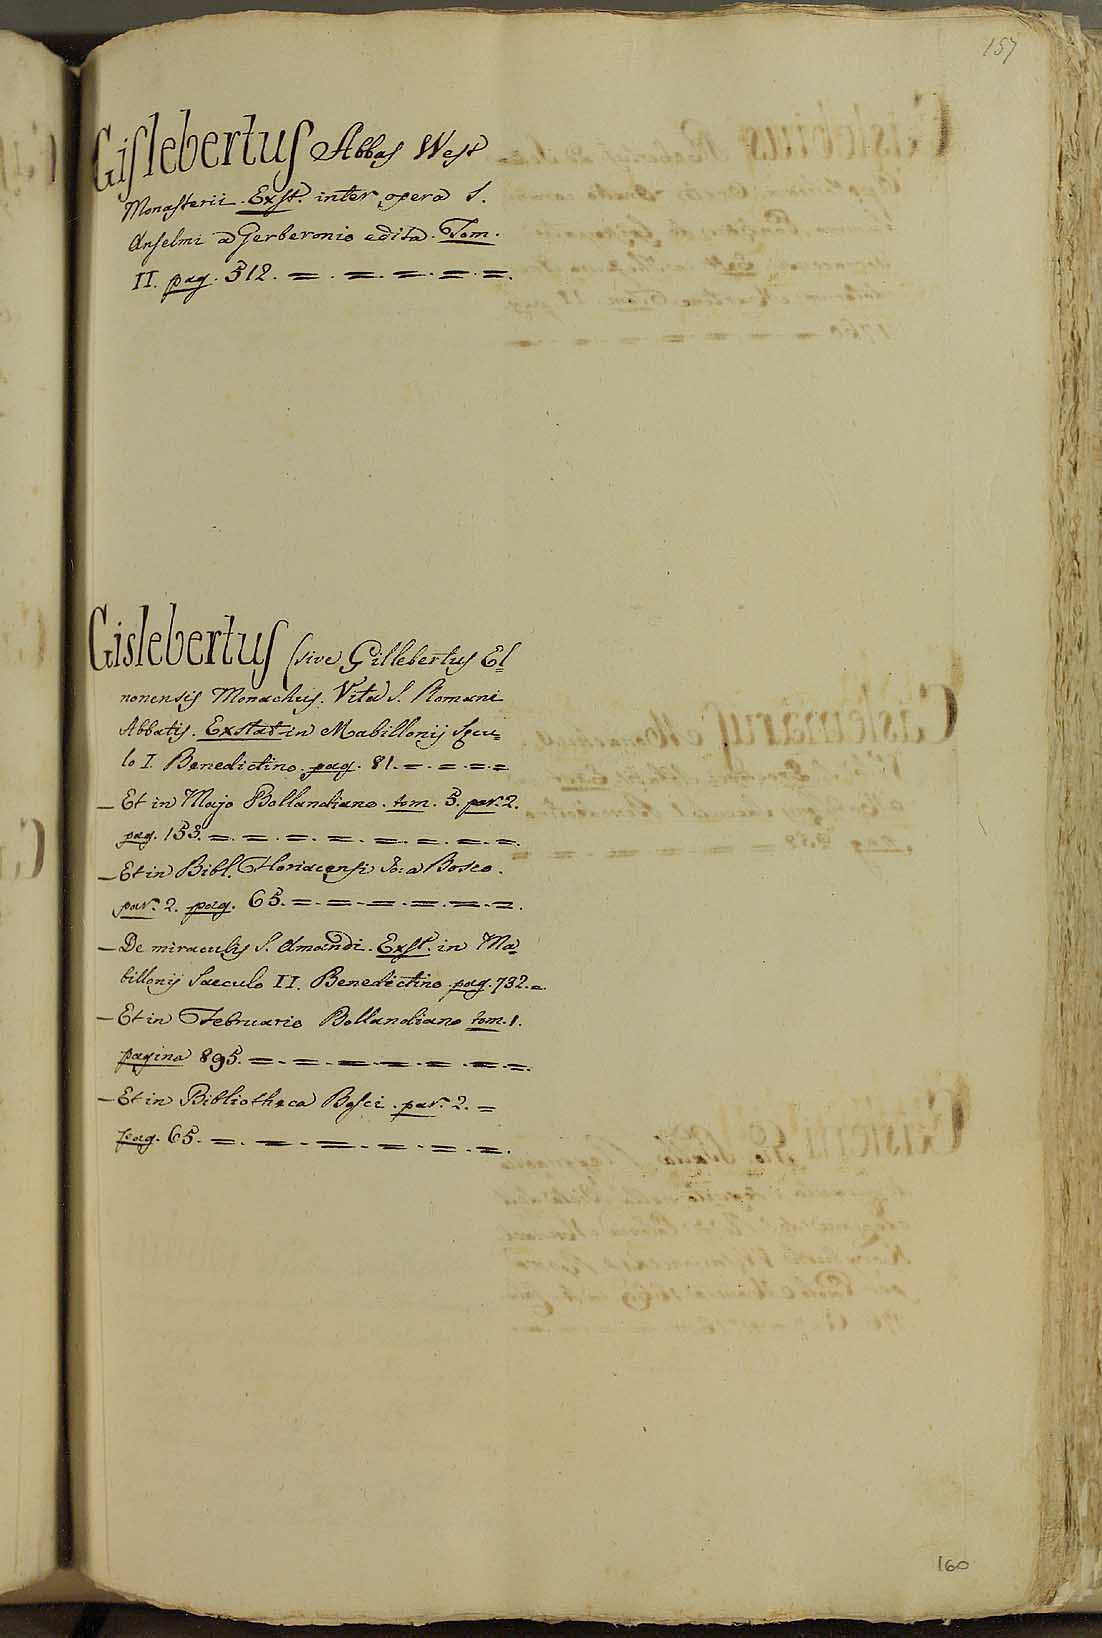 157
Gislebertus Abbas West
Monasterii. Exst. inter opera S.
Anselmi a Gerberonio edita. Tom.
II. pag. 512. = . = . = . = . = .
Gislebertus (sive Gillebertus El=
nonensis Monachus. Vita S. Romani
Abbatis. Exstat in Mabillonij Secu=
lo I. Benedictino. pag. 81. = . = . = . =
— Et in Majo Bollandiano. tom. 5. par. 2.
pag. 153. = . = . = . = . = . = . = . = .
— Et in Bibl. Floriacensi Jo: a Bosco.
par. 2. pag. 65. = . = . = . = . = . = .
— De miraculis S. Amandi. Exst. in Ma=
billonij Saeculo II. Benedictino pag. 732. =
— Et in Februario Bollandiano tom. 1.
pagina 895. = . = . = . = . = . = . = .
— Et in Bibliotheca Bosci. par. 2. =
pag. 65. = . = . = . = . = . = . = .
160